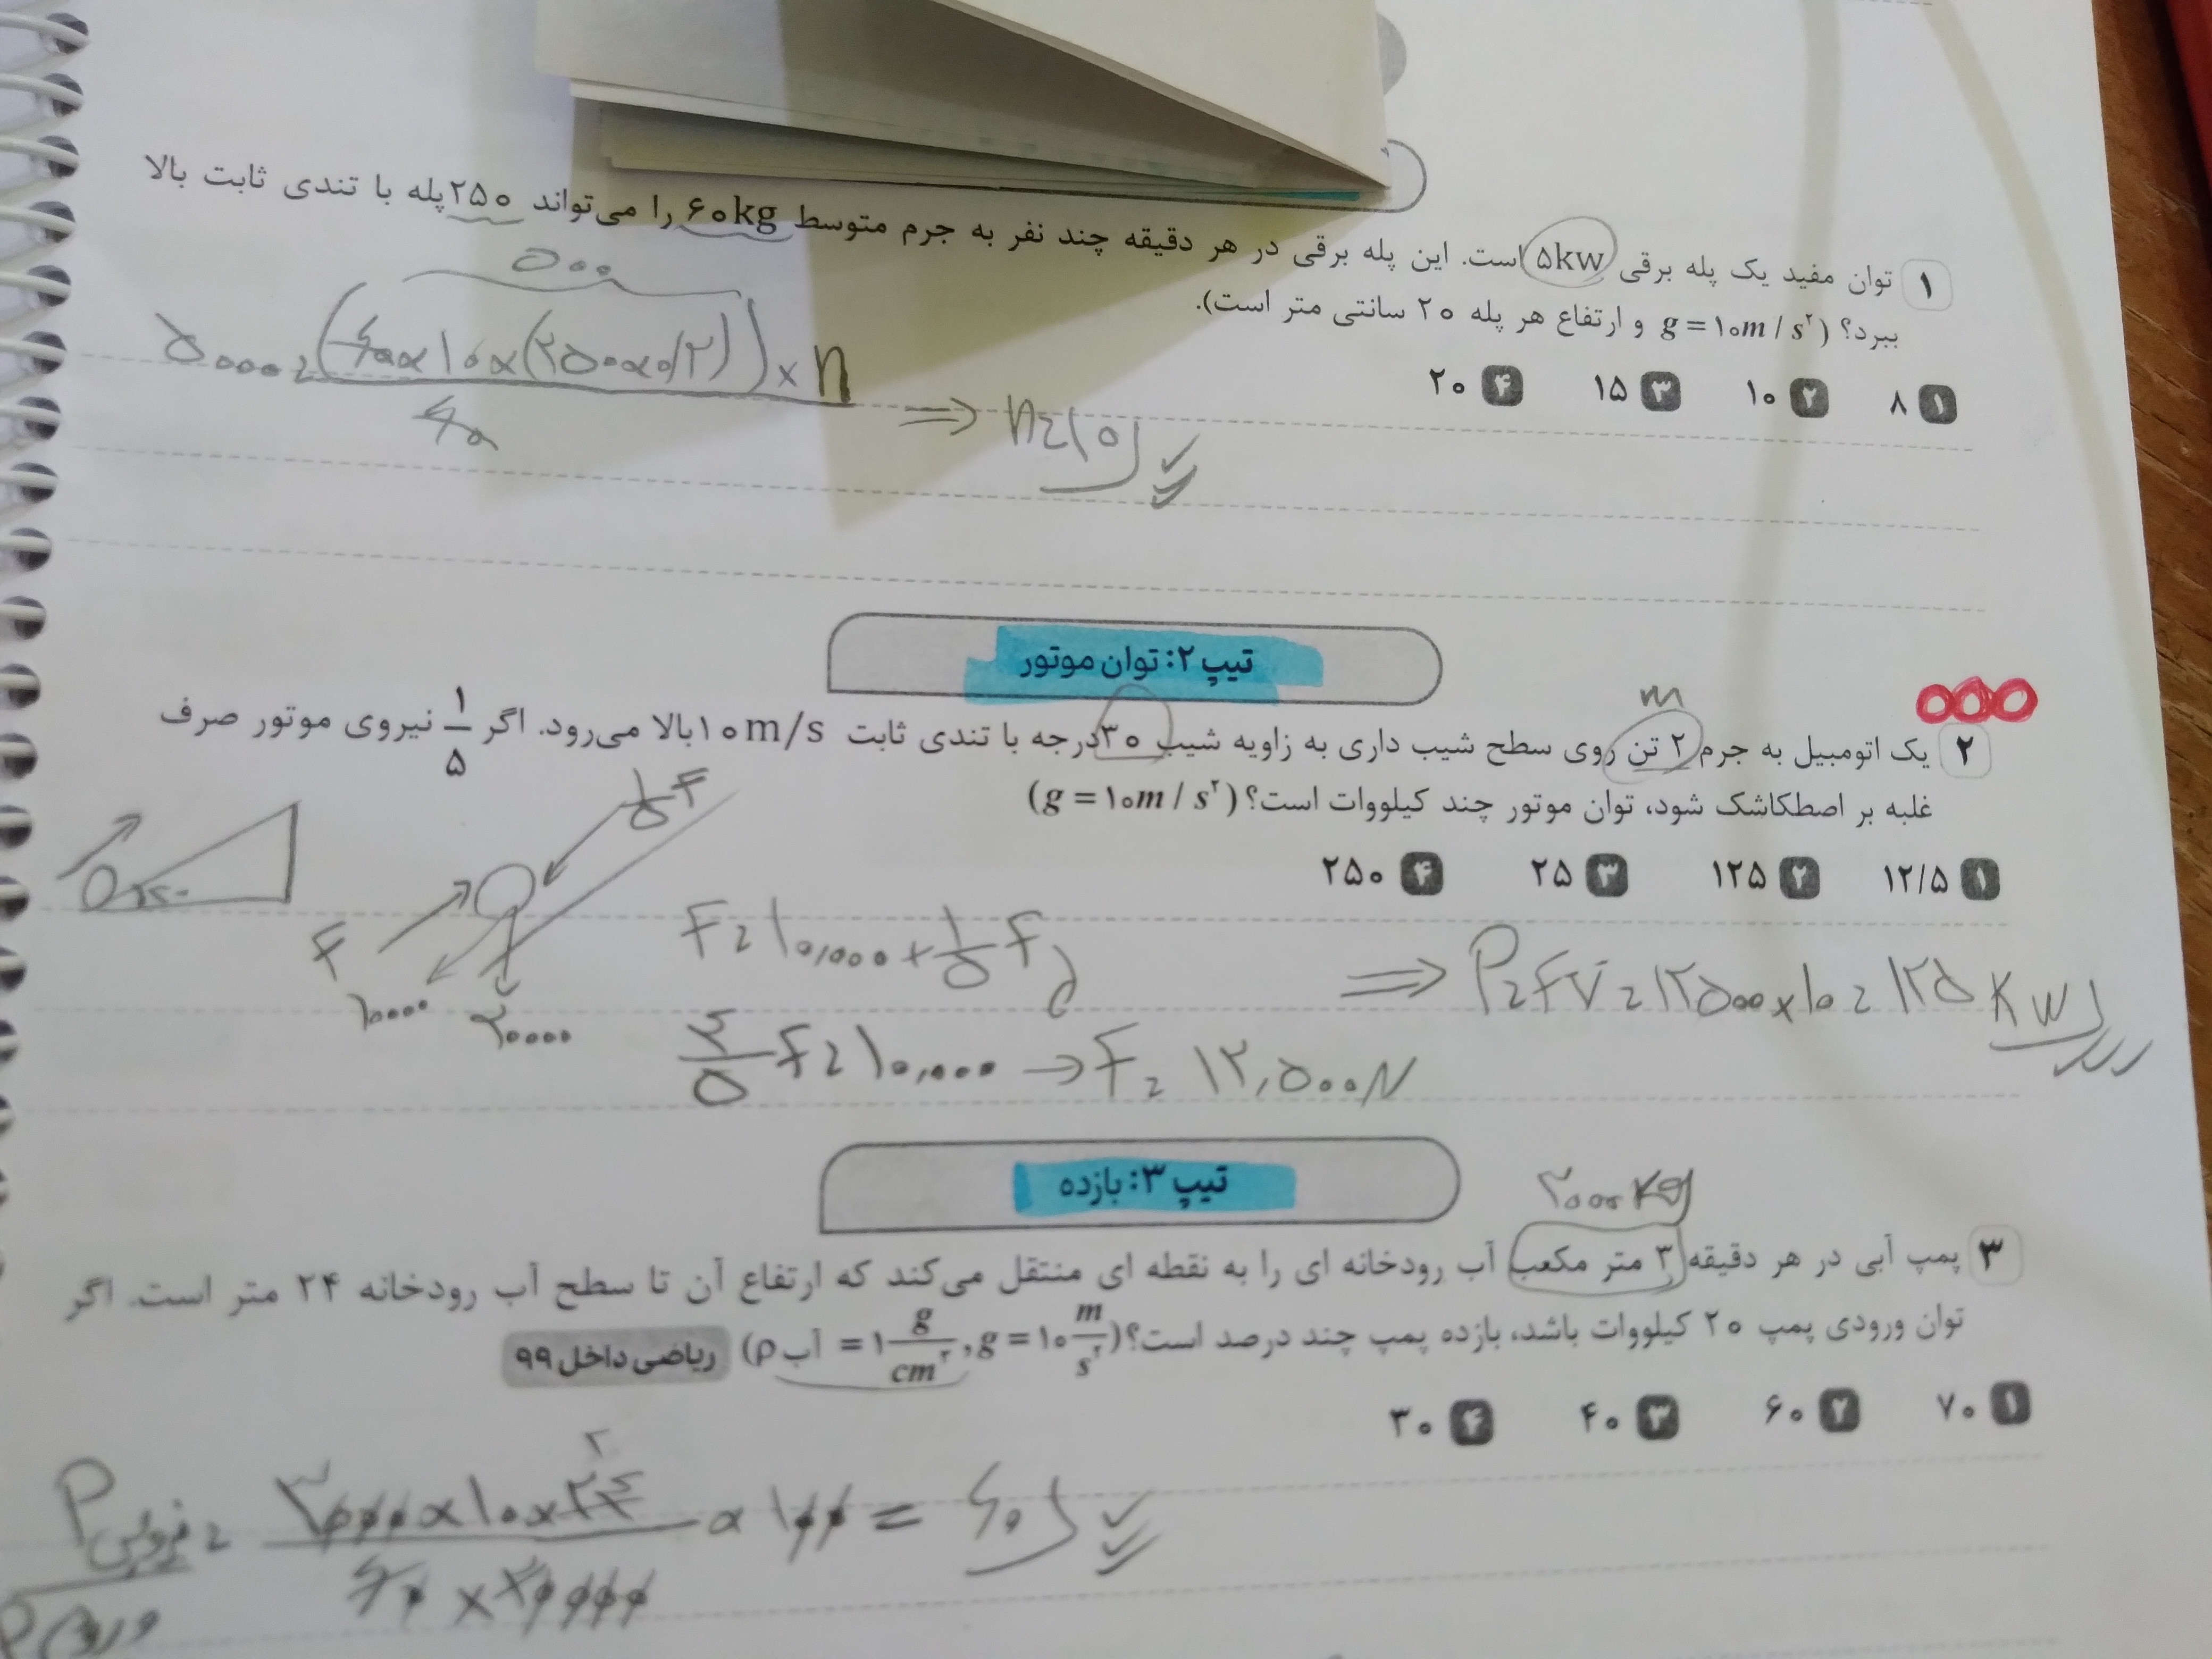 ۱ توان مفید یک پله برقی ۵kw است. این پله برقی در هر دقیقه چند نفر به جرم متوسط ۶۰kg را می‌تواند ۲۵۰ پله با تندی ثابت بالا
ببرد؟ (g = ۱۰m / s² و ارتفاع هر پله ۲۰ سانتی متر است).
۱ ۸ ۲ ۱۰ ۳ ۱۵ ۴ ۲۰
۵۰۰
۵۰۰۰ = (۶۰×۱۰×(۲۵۰×۰/۲))×n
۶۰
⇒ n=۱۰
تیپ ۲: توان موتور
m
۲ یک اتومبیل به جرم ۲ تن روی سطح شیب داری به زاویه شیب ۳۰ درجه با تندی ثابت ۱۰m/s بالا می‌رود. اگر ۱/۵ نیروی موتور صرف
غلبه بر اصطکاشک شود، توان موتور چند کیلووات است؟ (g = ۱۰m / s²)
۱ ۱۲/۵ ۲ ۱۲۵ ۳ ۲۵ ۴ ۲۵۰
۳۰
۱/۵ F
F
۱۰۰۰۰
۲۰۰۰۰
F = ۱۰,۰۰۰ + ۱/۵ F
۴/۵ F = ۱۰,۰۰۰ → F = ۱۲,۵۰۰N
⇒ P = FV = ۱۲۵۰۰×۱۰ = ۱۲۵ KW
تیپ ۳: بازده
۳۰۰۰ Kg
۳ پمپ آبی در هر دقیقه ۳ متر مکعب آب رودخانه ای را به نقطه ای منتقل می‌کند که ارتفاع آن تا سطح آب رودخانه ۲۴ متر است. اگر
توان ورودی پمپ ۲۰ کیلووات باشد، بازده پمپ چند درصد است؟ (g = ۱۰ m/s² , ρ آب = ۱ g/cm³) ریاضی داخل ۹۹
۱ ۷۰ ۲ ۶۰ ۳ ۴۰ ۴ ۳۰
P خروجی = ۳۰۰۰×۱۰×۲۴ × ۱۰۰ = ۶۰
P ورودی ۶۰×۲۰۰۰۰